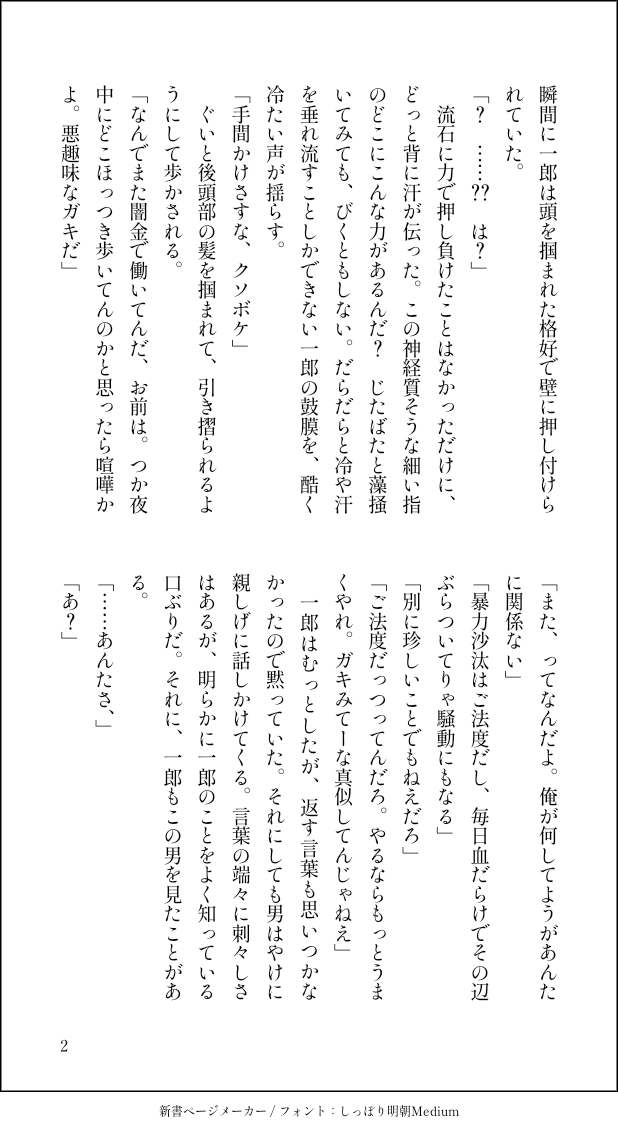 瞬間に一郎は頭を掴まれた格好で壁に押し付けら
れていた。
「？　……??　は？」
　流石に力で押し負けたことはなかっただけに、
どっと背に汗が伝った。この神経質そうな細い指
のどこにこんな力があるんだ？　じたばたと藻掻
いてみても、びくともしない。だらだらと冷や汗
を垂れ流すことしかできない一郎の鼓膜を、酷く
冷たい声が揺らす。
「手間かけさすな、クソボケ」
　ぐいと後頭部の髪を掴まれて、引き摺られるよ
うにして歩かされる。
「なんでまた闇金で働いてんだ、お前は。つか夜
中にどこほっつき歩いてんのかと思ったら喧嘩か
よ。悪趣味なガキだ」
「また、ってなんだよ。俺が何してようがあんた
に関係ない」
「暴力沙汰はご法度だし、毎日血だらけでその辺
ぶらついてりゃ騒動にもなる」
「別に珍しいことでもねえだろ」
「ご法度だっつってんだろ。やるならもっとうま
くやれ。ガキみてーな真似してんじゃねえ」
　一郎はむっとしたが、返す言葉も思いつかな
かったので黙っていた。それにしても男はやけに
親しげに話しかけてくる。言葉の端々に刺々しさ
はあるが、明らかに一郎のことをよく知っている
口ぶりだ。それに、一郎もこの男を見たことがあ
る。
「……あんたさ、」
「あ？」
2
新書ページメーカー / フォント：しっぽり明朝Medium